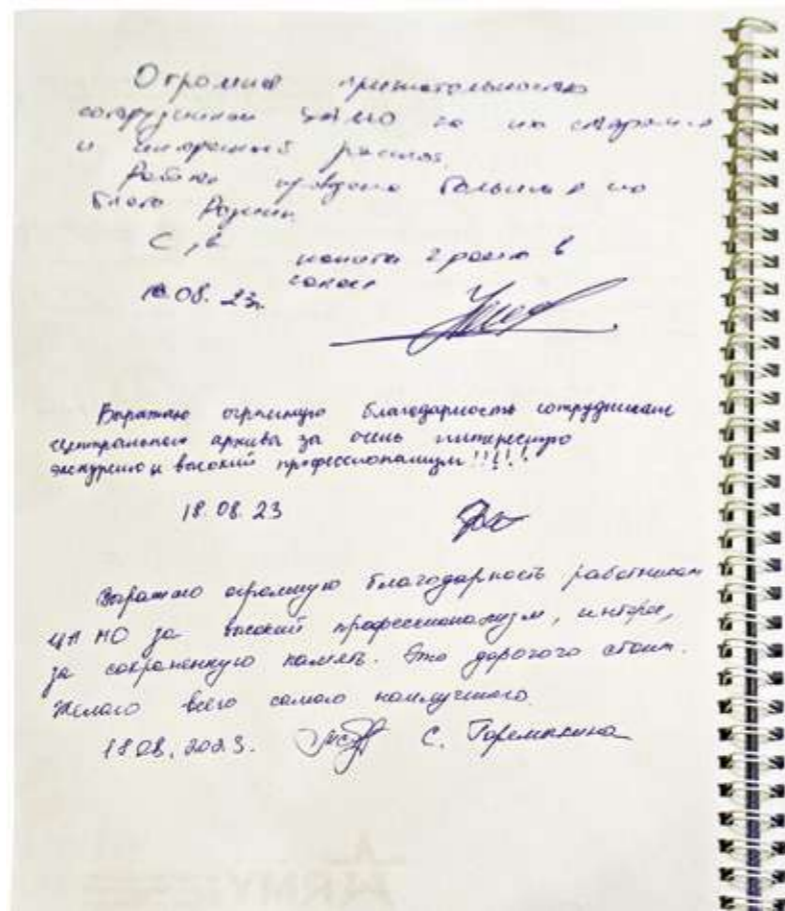 Огромная признательность
сотрудникам ЦАМО за их старания
и интересный рассказ.
Работа проведена большая на
благо Родины.
С ув.
18.08.23г.
Выражаю огромную благодарность сотрудникам
центрального архива за очень интересную
экскурсию и высокий профессионализм!!!!!
18.08.23
Выражаю огромную благодарность работникам
ЦАМО за высокий профессионализм,
за сохраненную память. Это дорогого стоит.
Желаю всего самого наилучшего.
18.08.2023. С. Горемыкина
ARMY